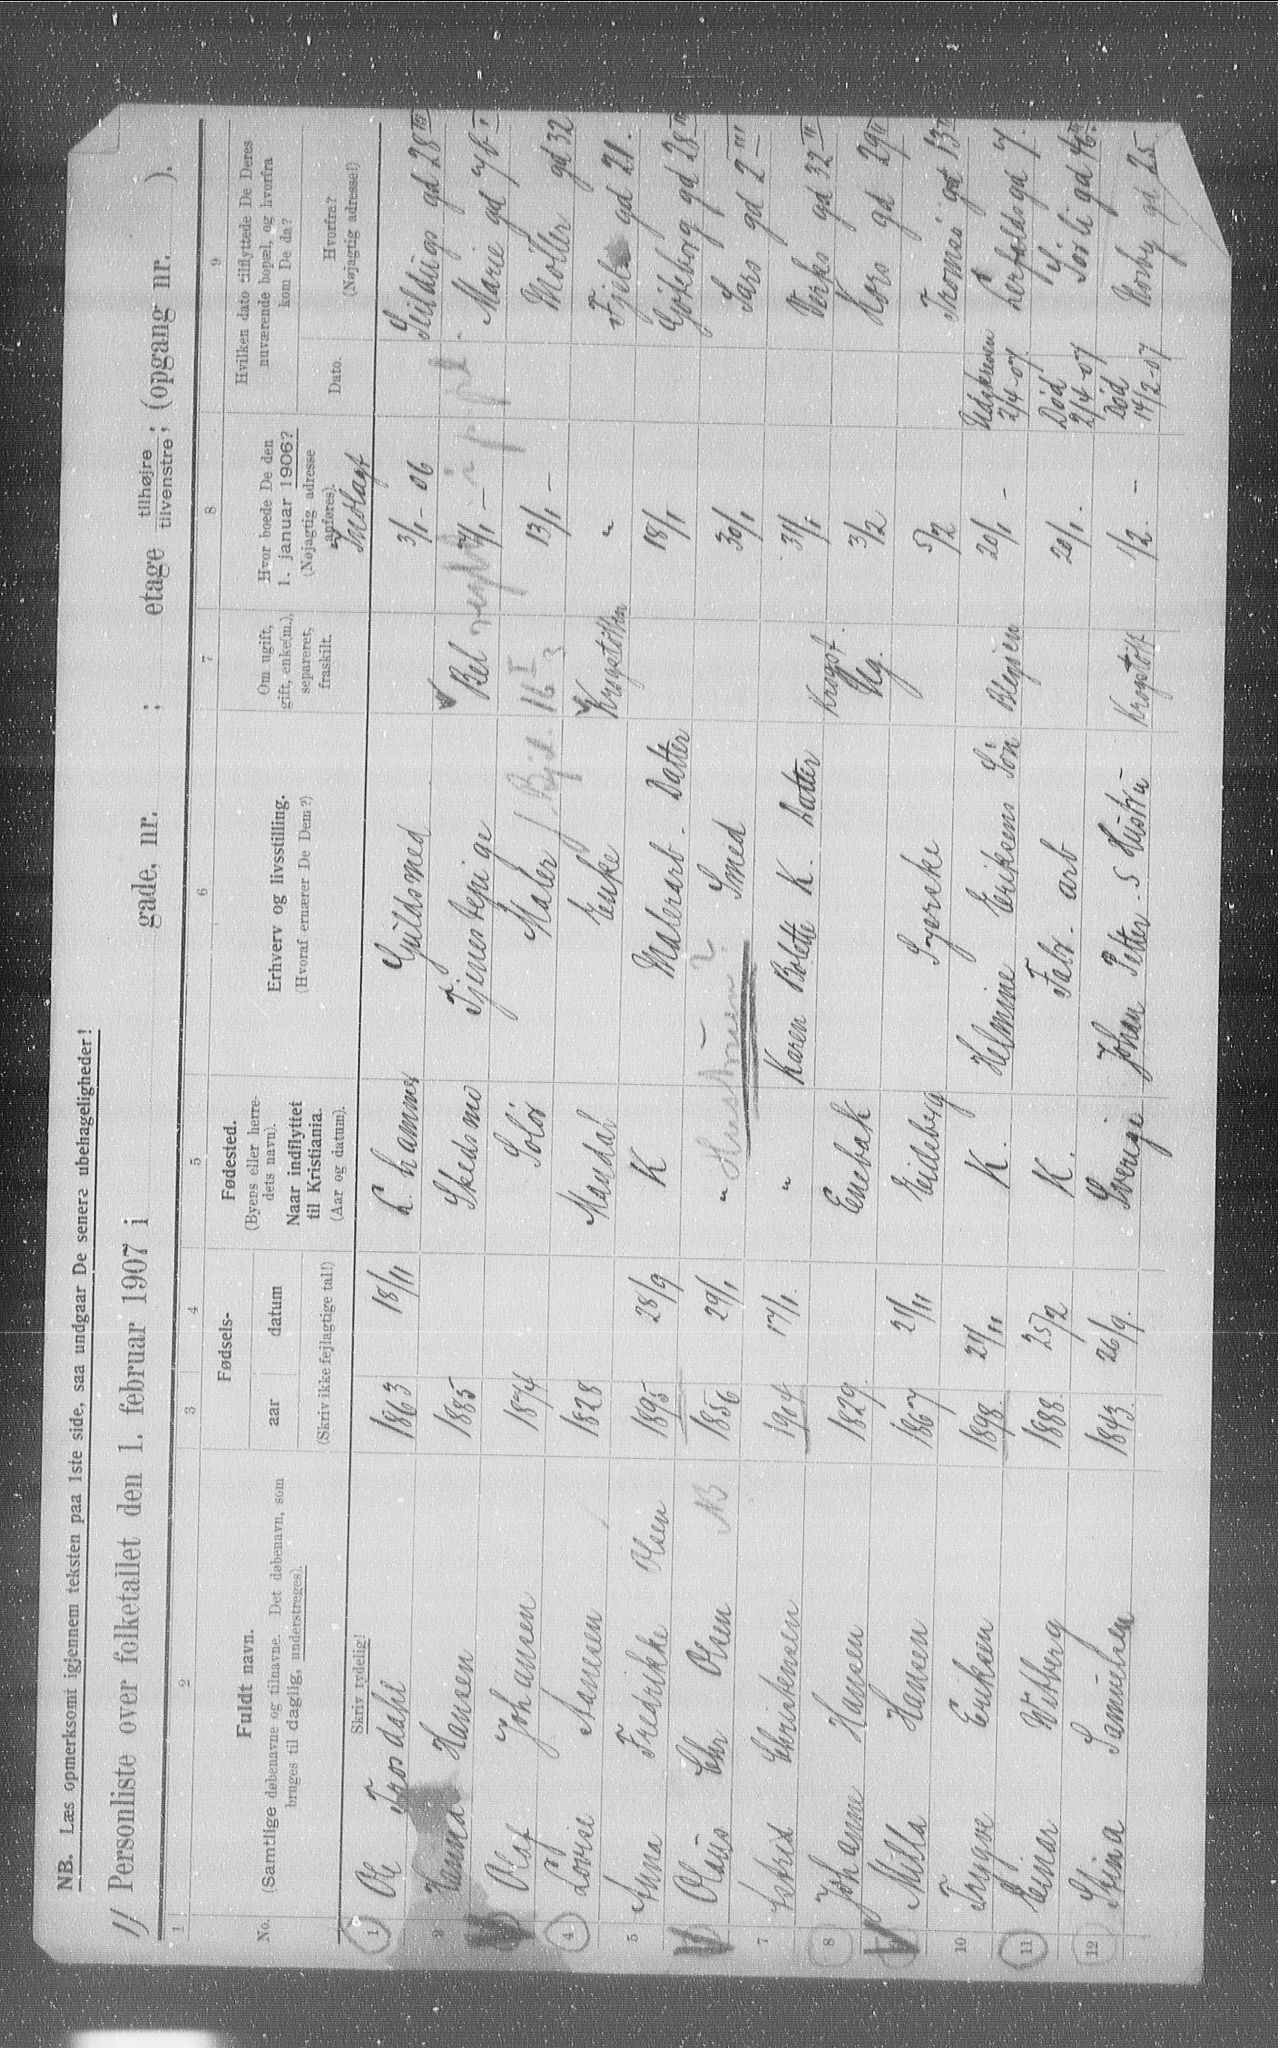 NB. Læs opmerksomt igjennem teksten paa 1ste side, saa undgaar De senere ubehageligheder!
1/ Personliste over folketallet den 1. februar 1907 i gade, nr. ; etage tilhøjre tilvenstre ; (opgang nr. ).
1 2 3 4 5 6 7 8 9
No.
Fuldt navn.
(Samtlige døbenavne og tilnavne. Det døbenavn, som
bruges til daglig, understreges).
Skriv tydelig!
Fødsels-
aar datum
(Skriv ikke fejlagtige tal!)
Fødested.
(Byens eller herre-
dets navn).
Naar indflyttet
til Kristiania.
(Aar og datum).
Erhverv og livsstilling.
(Hvoraf ernærer De Dem?)
Om ugift,
gift, enke(m.),
separeret,
fraskilt.
Hvor boede De den
1. januar 1906?
(Nøjagtig adresse
anføres).
Indlagt
Hvilken dato tilflyttede De Deres
nuværende bopæl, og hvorfra
kom De da?
Dato.
Hvorfra?
(Nøjagtig adresse!)
1 Ole Frosdahl 1863 18/11 L.hammer Guldsmed 3/1 - 06 Seildugs gd 28 III
2 Hanna Hansen 1885 Skedsmo Tjenestepige Bel 7/1 - Marie gd 7b I
Olaf Johansen 1874 Solør Maler 13/1 - Møller gd 32
4 Lovise Aanesen 1828 Mandal Enke Krogstøtten " Fjeld gd 21.
5 Anna Fredrikke Olsen 1895 28/9 K Malerarb. Datter 18/1 Gøteborg gd 28 III
Olaus Chr Olsen NB 1856 29/1 " Hustruen? Smed 30/1 Sars gd 2 III
7 Astrid Christensen 1904 17/1. " Karen Bolette K. Datter 31/1 Verks gd 32 II
8 Johanne Hansen 1829 Enebak Krogst. Ug. 3/2 Kors gd 29 II
Milla Hansen 1867 21/11 Eideberg Syerske 5/2 Tromsø gd 13 II
10 Trygve Eriksen 1898. 21/11 K. Helmine Eriksen Søn Blegien 20/1 - Udskreven 2/4-07. gd 7.
11 Einar Witberg 1888. 25/2 K. Fabr. arb 20/1. Død 2/4-07 Sørli gd
12 Stina Samuelsen 1843. 26/9. Sverige Johan Petter S Hustru Krogstøtt 1/2. - Død 14/2-07 Norby gd 25.